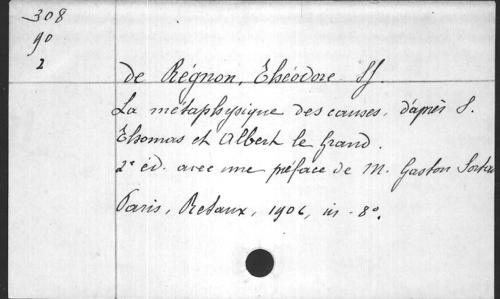 308
90
2
de Régnon, Théodore SJ.
La métaphysique des causes, d'après S.
Thomas et Albert le Grand.
2e éd. avec une préface de M. Gaston Sortais
Paris, Retaux, 1906, in-8°.